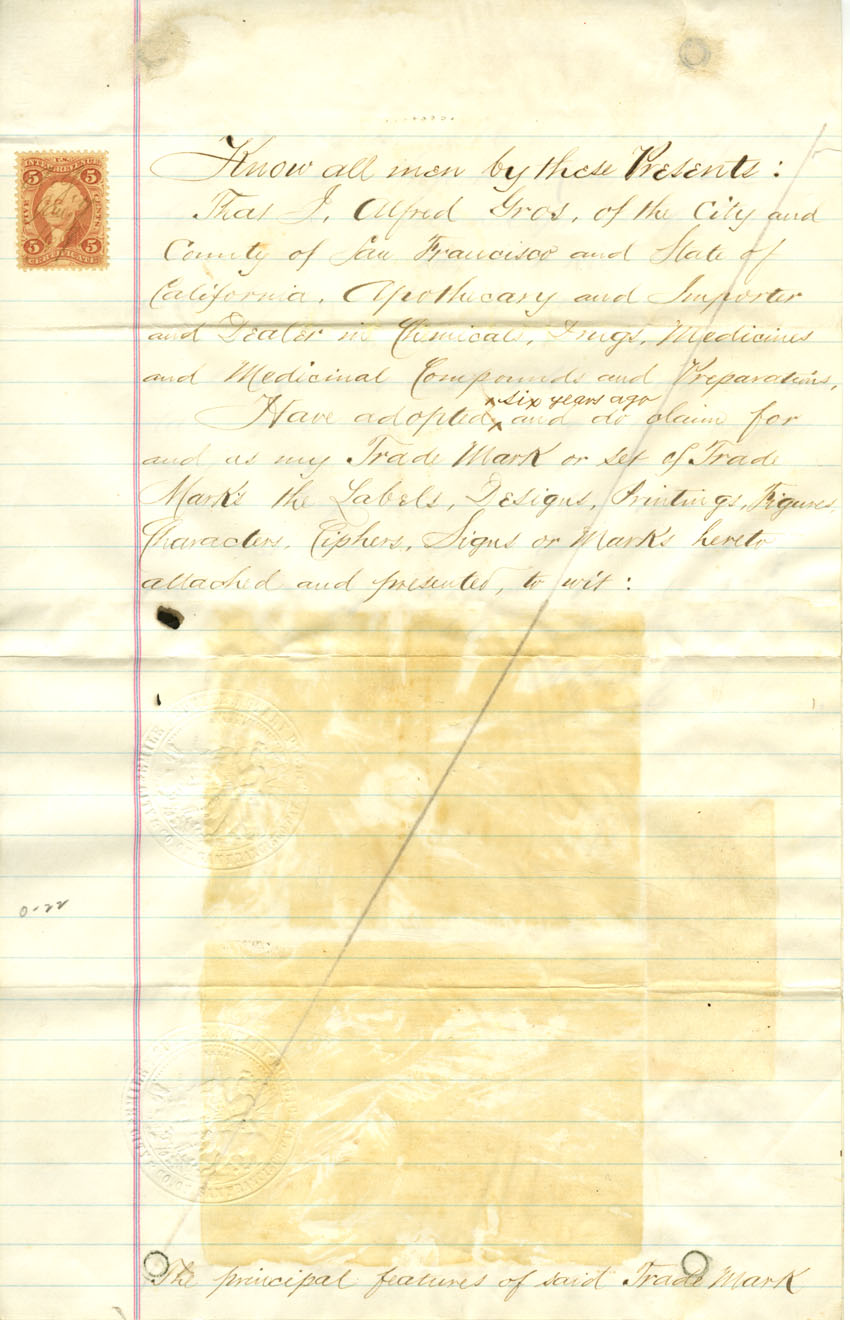 Know all men by these Presents:
That I, Alfred Gros, of the City and
County of San Francisco and State of
California, Apothecary and Importer
and Dealer in Chimicals, Drugs, Medicines
and Medicinal Compounds and Preparations,
six years ago
Have adopted and do claim for
and as my Trade Mark or set of Trade
Marks the Labels, Designs, Printings, Figures,
Characters, Ciphers, Signs or Marks hereto
attached and presented, to wit:
U.S.
INTER. REVENUE
5 5
FIVE CENTS
5 5
CERTIFICATE
0-22
The principal features of said Trade Mark